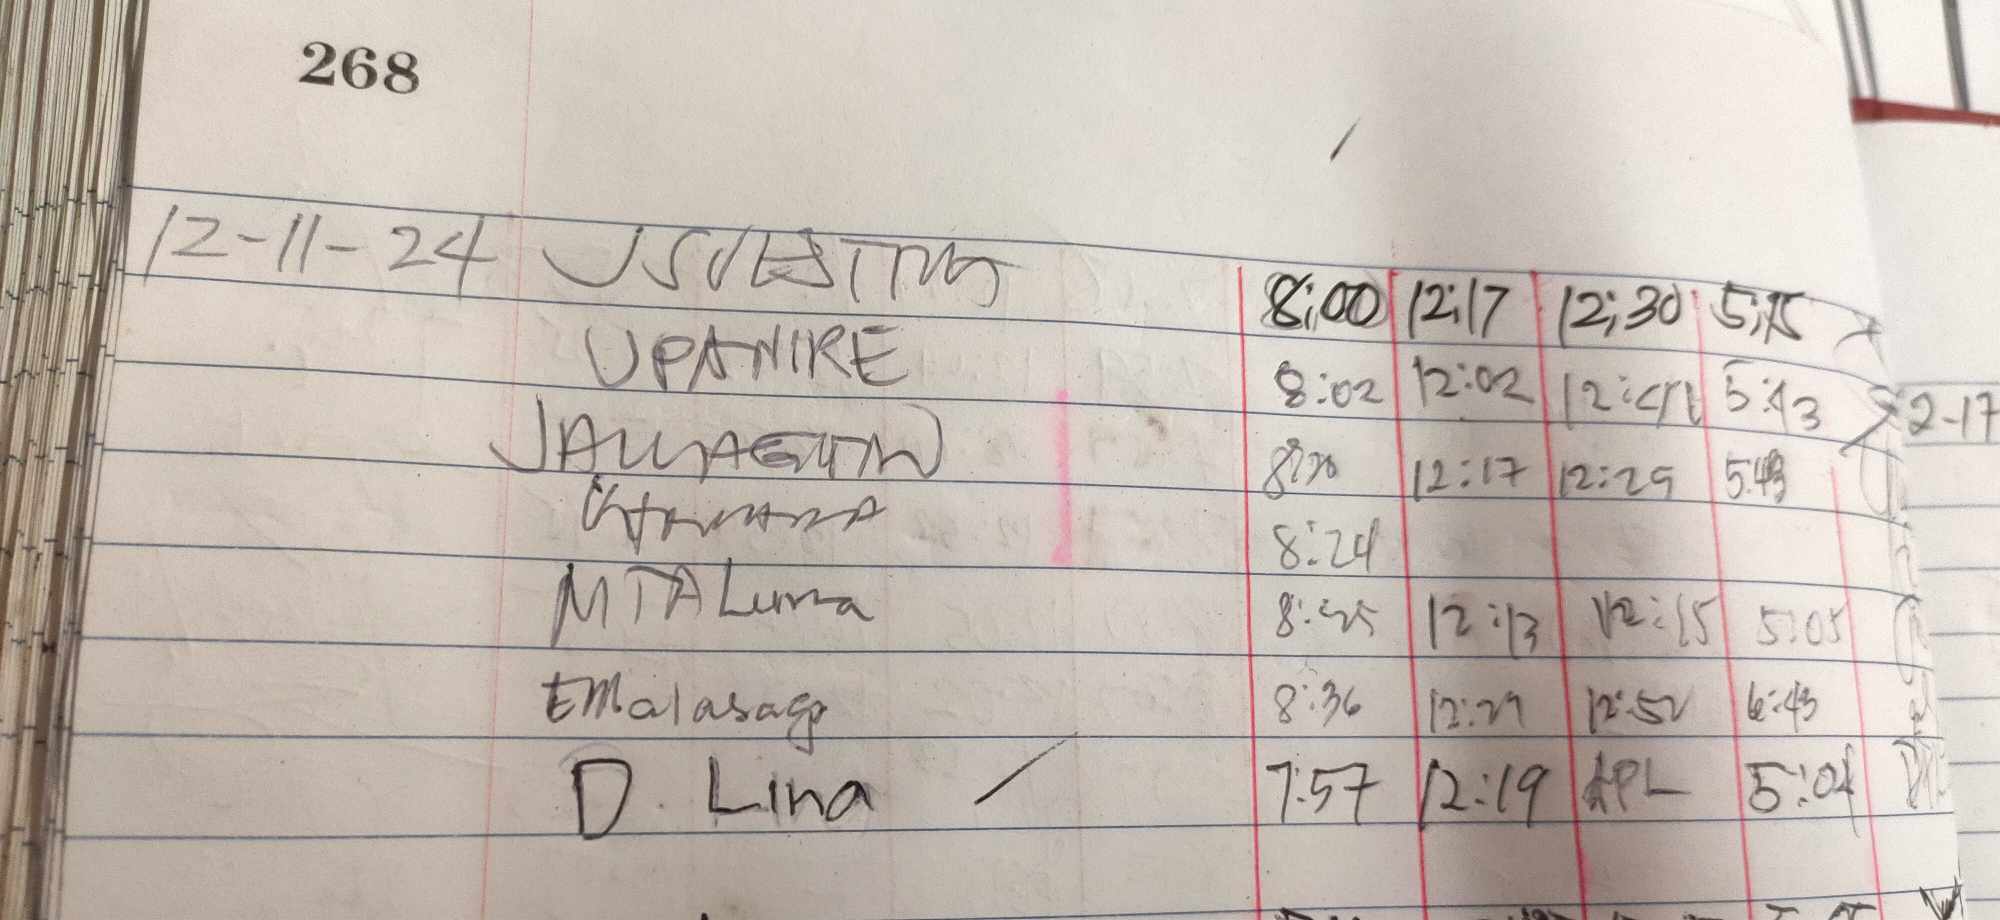 268
12-11-24 8:00 12:17 12;30 5;15
UPANIRE 8:02 12:02 12:41 5:43
12:17 12:29 5:43
8:24
MTALuma 8:25 12:13 12:15 5:05
EMalasaga 8:36 12:29 12:52 6:43
D. Lina 7:57 12:19 APL 5:04
2-17